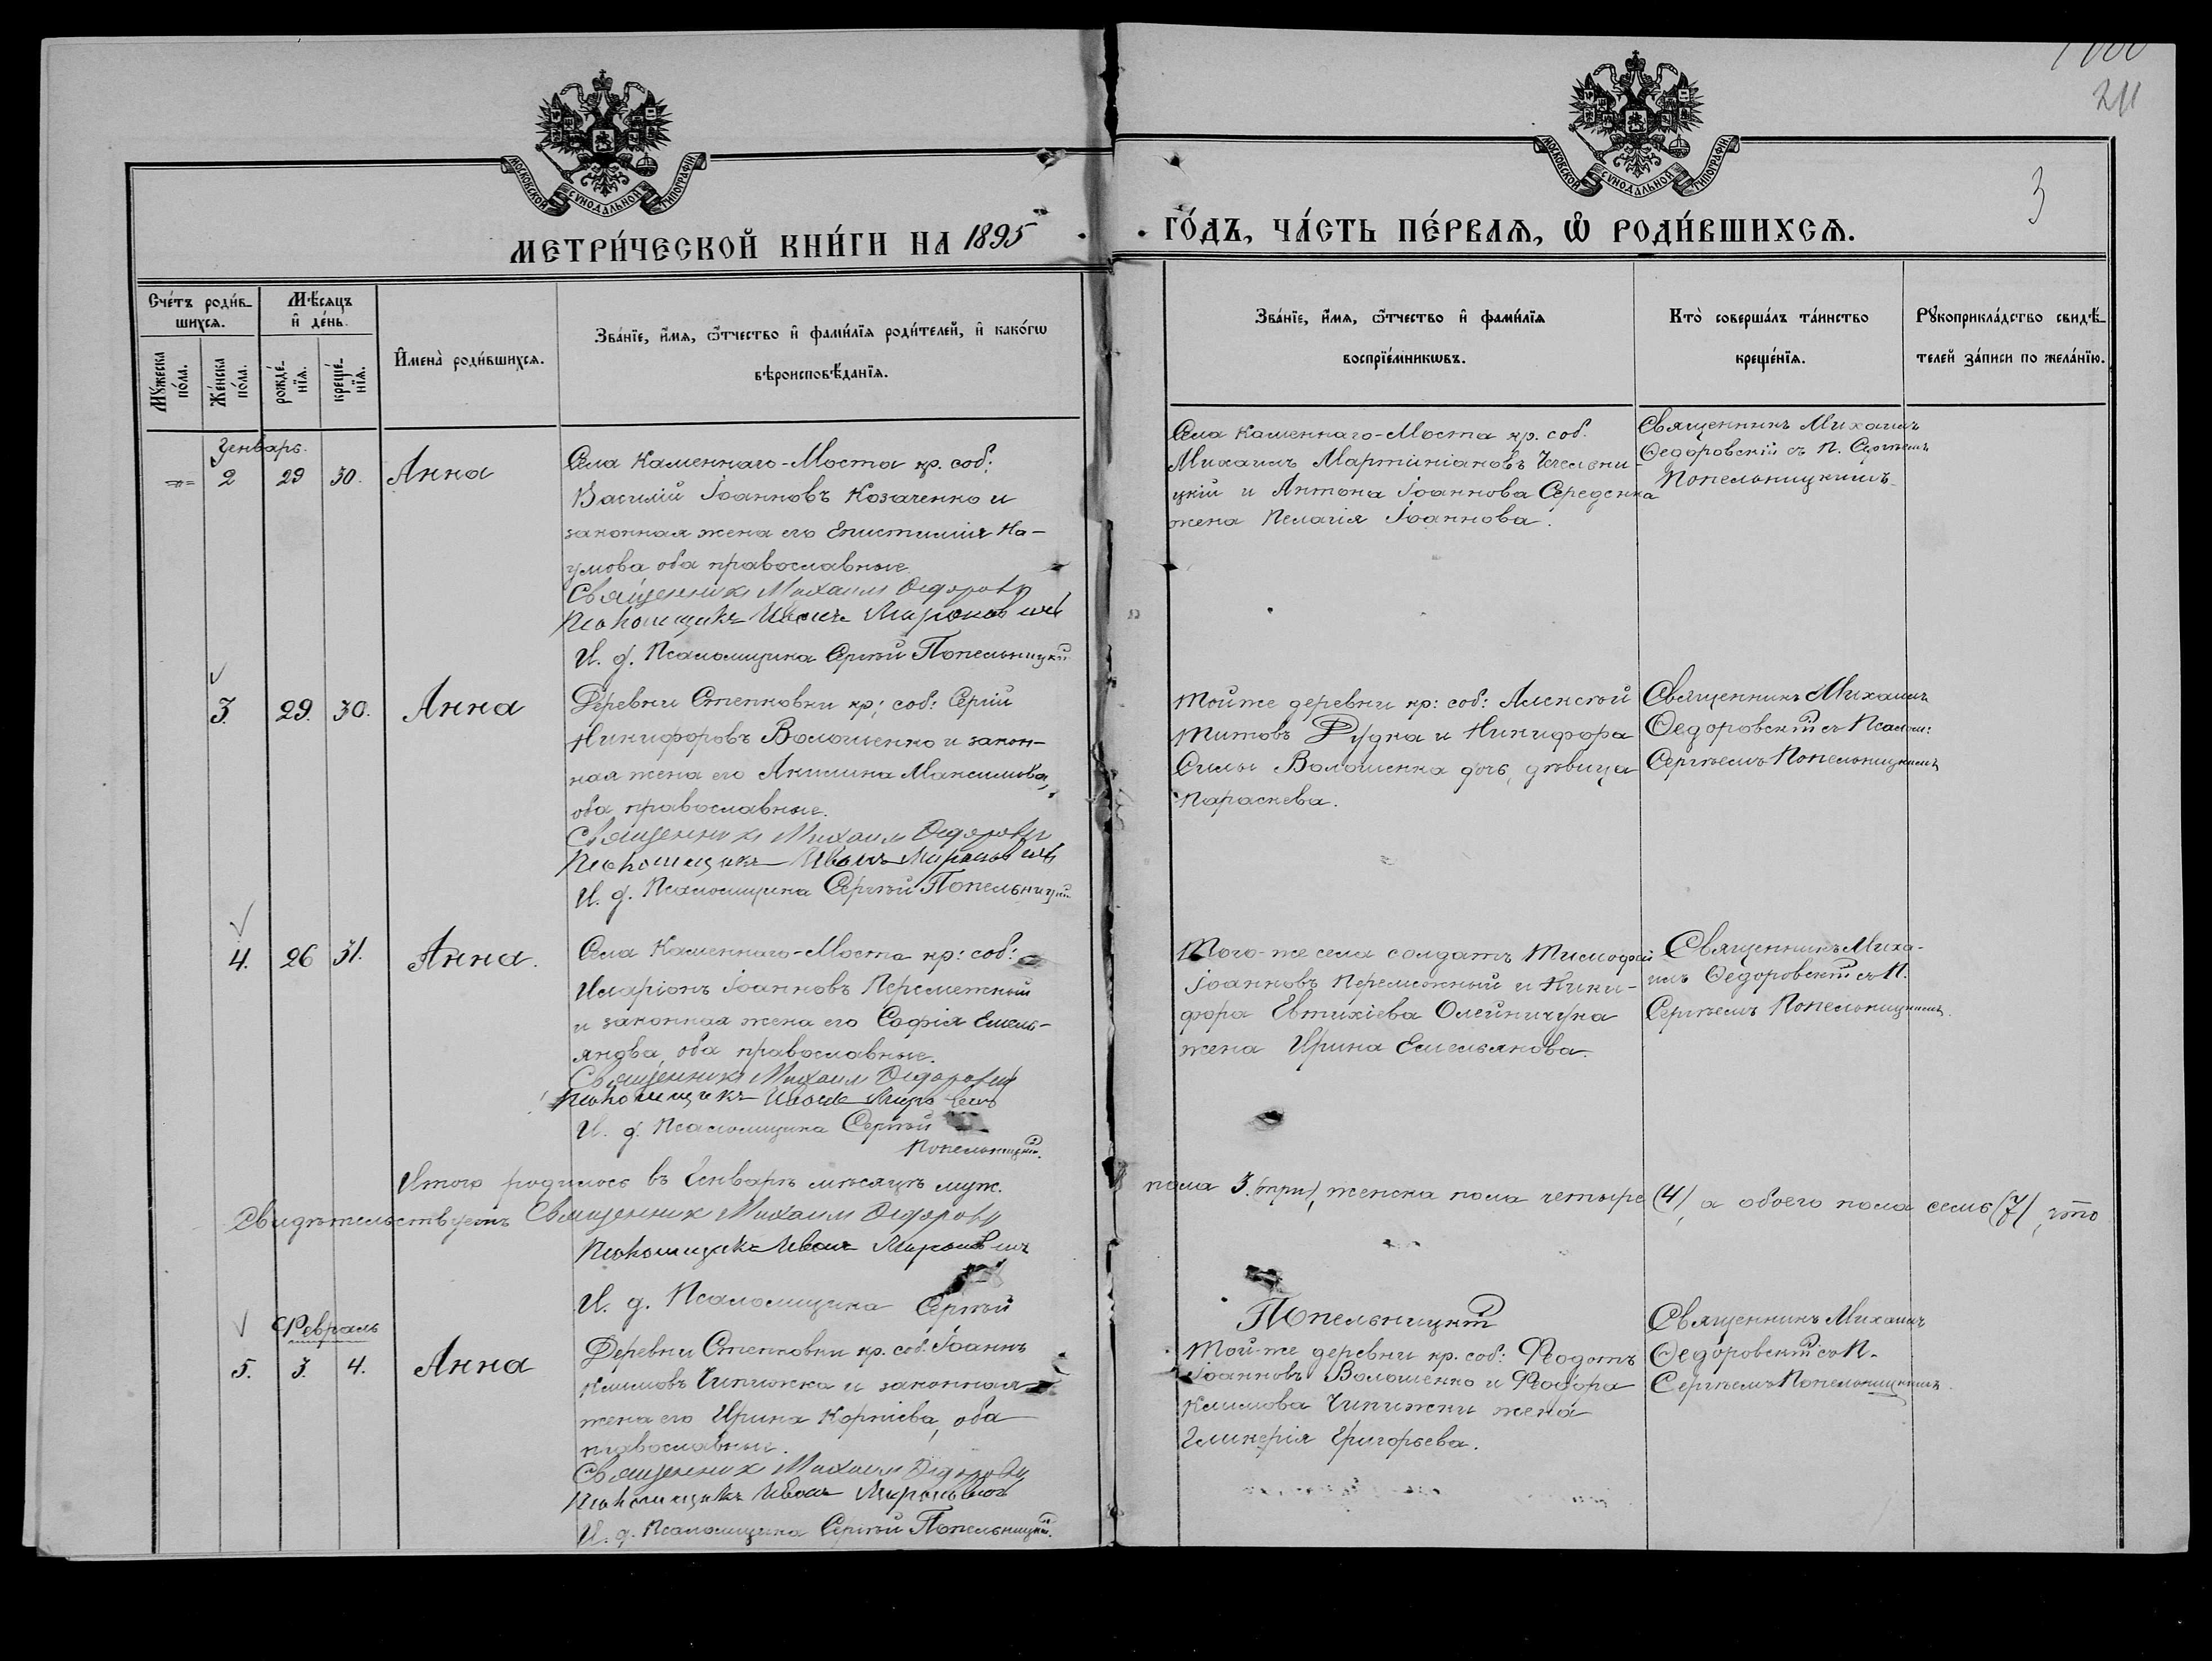 1000
211
3
МОСКОВСКОЙ СѴНОДАЛЬНОЙ ТИПОГРАФІИ
МОСКОВСКОЙ СѴНОДАЛЬНОЙ ТИПОГРАФІИ
МЕТРИ́ЧЕСКОЙ КНИ́ГИ НА 1895
ГО́ДЪ, ЧА́СТЬ ПЕ́РВАѦ, Ѡ҆ РОДИ́ВШИХСѦ.
Сче́тъ роди́в-
шихсѧ.
Мꙋ́жеска
по́ла.
Же́нска
по́ла.
Мѣ́сѧцъ
и҆ де́нь.
рожде́-
нїѧ.
креще́-
нїѧ.
И҆мена̀ роди́вшихсѧ.
Зва́нїе, и҆́мѧ, ѻ҆́тчество и҆ фами́лїѧ роди́телей, и҆ како́гѡ
вѣроисповѣ́данїѧ.
Зва́нїе, и҆́мѧ, ѻ҆́тчество и҆ фами́лїѧ
воспрїе́мникѡвъ.
Кто̀ соверша́лъ та́инство
креще́нїѧ.
Рꙋкоприкла́дство свидѣ́-
телей за́писи по жела́нїю.
Генварь.
2 29 30. Анна
Села Каменнаго-Моста кр. соб:
Василій Іоанновъ Козаченко и
законная жена его Епистимія На-
умова оба православные
Священникъ Михаил Федоровс
Псаломщикъ Иванъ Миронович
И. д. Псаломщика Сергѣй Попельницкій
Села Каменнаго-Моста кр. соб.
Михаилъ Мартиніановъ Чечельни-
цкій и Антона Іоаннова Середенка
жена Пелагія Іоаннова.
Священникъ Михаилъ
Ѳедоровскій съ П. Сергѣемъ
Попельницкимъ
3. 29. 30. Анна
Деревни Степковки кр: соб: Сергій
Никифоровъ Волошенко и закон-
ная жена его Акилина Максимова,
оба православные.
Священникъ Михаил Федоровс
Псаломщикъ Иванъ Миронович
И. д. Псаломщика Сергѣй Попельницкій
Той же деревни кр: соб: Алексѣй
Титовъ Рудка и Никифора
Силы Волошенка дочь, дѣвица
Параскева.
Священникъ Михаилъ
Ѳедоровскій съ Псалом:
Сергѣемъ Попельницкимъ
4. 26 31. Анна.
Села Каменнаго-Моста кр: соб:
Иларіонъ Іоанновъ Переметный
и законная жена его Софія Емель-
янова, оба православные.
Священникъ Михаил Федоровс
Псаломщикъ Иванъ
И. д. Псаломщика Сергѣй
Попельницкій.
Того-же села солдатъ Тимофей
Іоанновъ Переметный и Ники-
фора Евтихіева Олейничука
жена Ирина Емельянова.
Священникъ Миха-
илъ Ѳедоровскій съ П.
Сергѣемъ Попельницкимъ.
Итого родилось въ Генварѣ мѣсяцѣ муж.
пола 3. (три), женска пола четыре (4), а обоего пола семь (7), что
Свидѣтельствуемъ Священник Михаил Федоровс
Псаломщикъ Иванъ Миронович
И. д. Псаломщика Сергѣй
Попельницкій
Февраль
5. 3. 4. Анна
Деревни Степковки кр. соб. Іоаннъ
Климовъ Чипижка и законная
жена его Ирина Корніева, оба
православные.
Священник Михаил Федоровс
Псаломщикъ Иванъ Миронович
И. д. Псаломщика Сергѣй Попельницкій.
Той-же деревни кр. соб: Ѳеодотъ
Іоанновъ Волошенко и Ѳеодора
Климова Чипижки жена
Гликерія Григорьева.
Священникъ Михаилъ
Ѳедоровскій съ П.
Сергѣемъ Попельницкимъ.